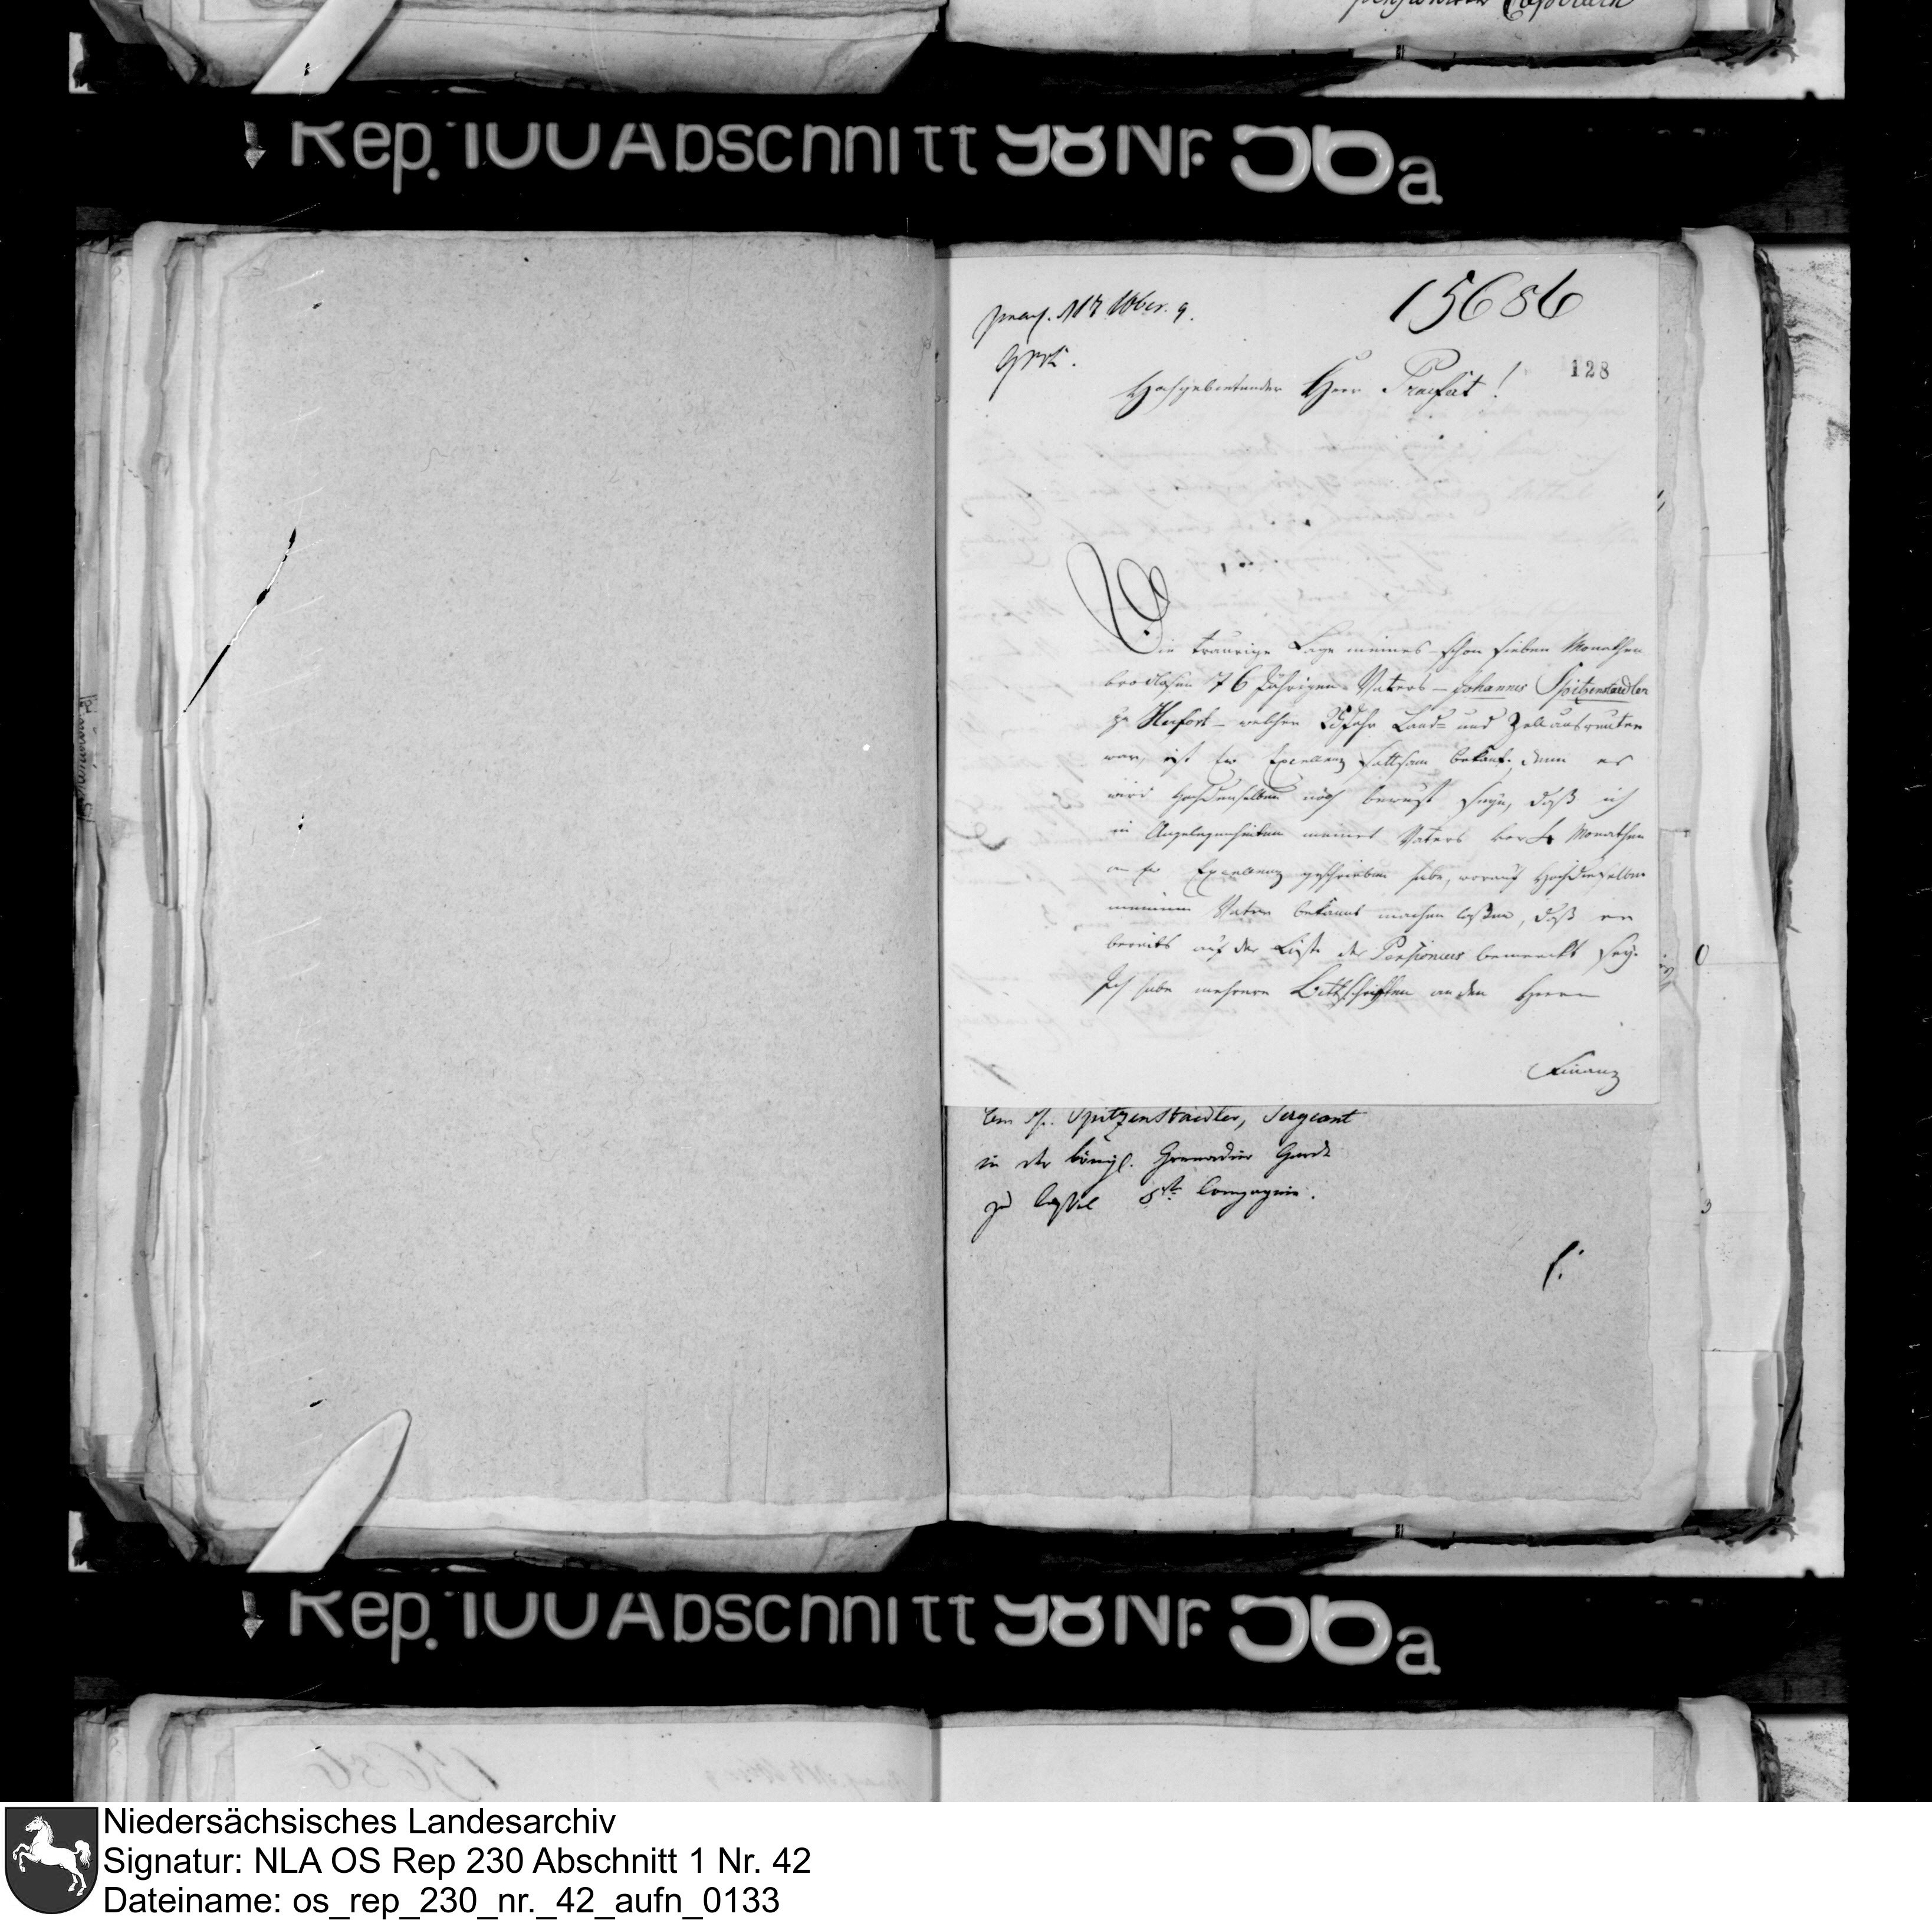 pensionirter
Rep. 100 Abschnitt 98 Nr. 56a
15686
praes. d 17 10ber. 9.
128
Hochgebietender Herr Praefect!
Die traurige Lage meines schon sieben Monathen
brodlosen 76 Jährigen Vaters – Johannes Spitzenstaedler
zu Herfort – welcher Jahr Land- und Zollausreuter
war, ist Ew Excellenz sattsam bekant; denn es
wird Hochdenselben noch bewust seyn, daß ich
in Angelegenheiten meines Vaters vor 4 Monathen
an Ew Excellenz geschrieben habe, worauf Hochdieselben
meinem Vater bekannt machen laßen, daß er
bereits auf der Liste der Pensionairs bemerckt sey.
Ich habe mehrere Bittschriften an den Herrn
Finanz
dem H. Spitzenstaedler, Sergeant
in der königl. Grenadier Garde
zu Cassel 5te Compagnie.
Rep. 100 Abschnitt 98 Nr. 56a
Niedersächsisches Landesarchiv
Signatur: NLA OS Rep 230 Abschnitt 1 Nr. 42
Dateiname: os_rep_230_nr._42_aufn_0133